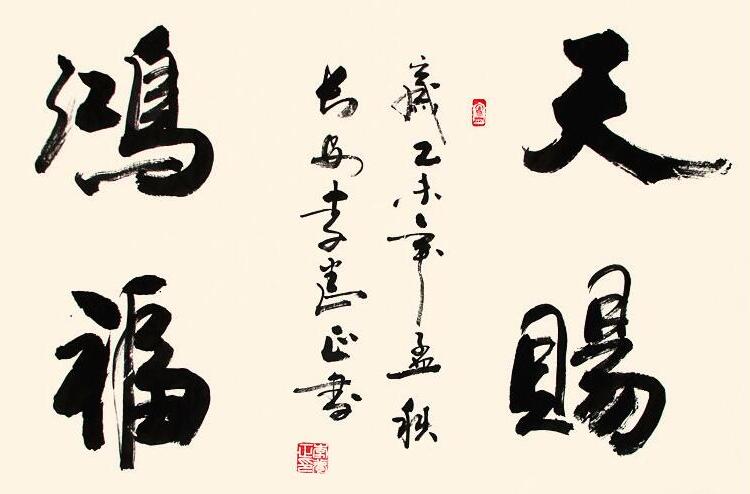 天賜
歲乙未年孟秋
長安李正書
鴻福